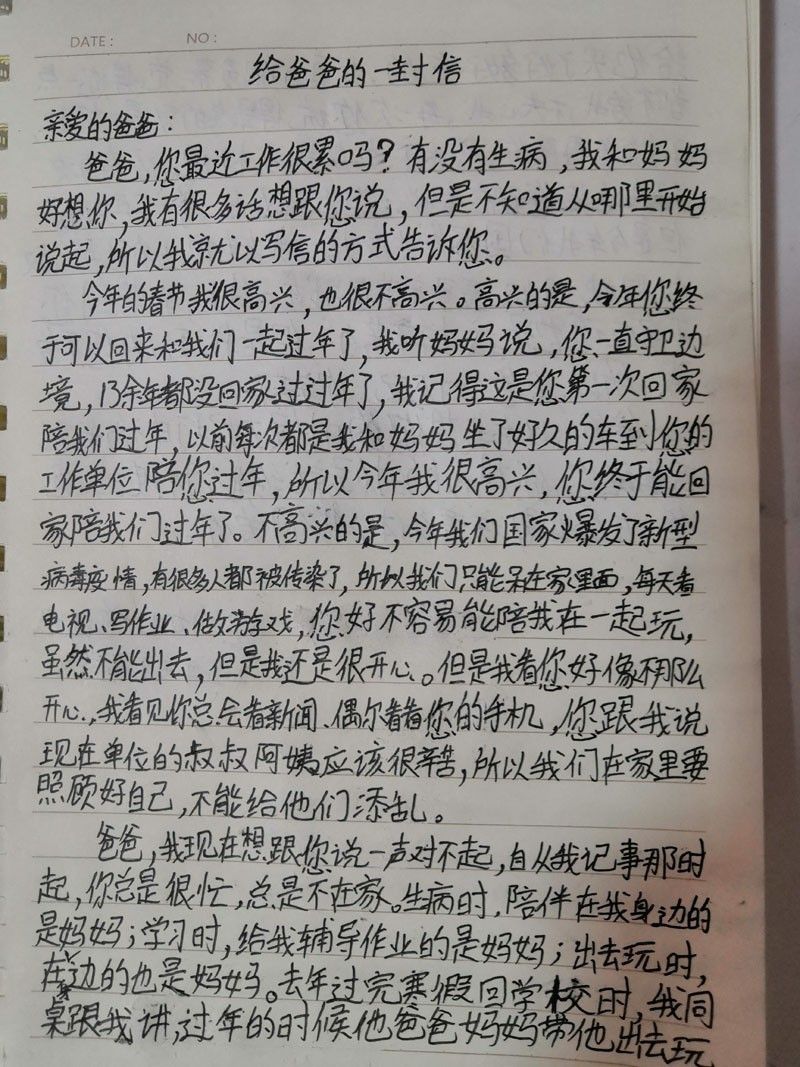 DATE: NO:
给爸爸的一封信
亲爱的爸爸:
爸爸,您最近工作很累吗?有没有生病,我和妈妈
好想你,我有很多话想跟您说,但是不知道从哪里开始
说起,所以我就以写信的方式告诉您。
今年的春节我很高兴,也很不高兴。高兴的是,今年您终
于可以回来和我们一起过年了,我听妈妈说,你一直守卫边
境,13余年都没回家过过年了,我记得这是您第一次回家
陪我们过年,以前每次都是我和妈妈坐了好久的车到您的
工作单位陪您过年,所以今年我很高兴,您终于能回
家陪我们过年了。不高兴的是,今年我们国家爆发了新型
病毒疫情,有很多人都被传染了,所以我们只能呆在家里面,每天看
电视、写作业、做游戏,您好不容易能陪我在一起玩,
虽然不能出去,但是我还是很开心。但是我看您好像不那么
开心,我看见你总会看新闻、偶尔看看您的手机,您跟我说
现在单位的叔叔阿姨应该很辛苦,所以我们在家里要
照顾好自己,不能给他们添乱。
爸爸,我现在想跟您说一声对不起,自从我记事那时
起,你总是很忙,总是不在家。生病时,陪伴在我身边的
是妈妈;学习时,给我辅导作业的是妈妈;出去玩时,
在边的也是妈妈。去年过完寒假回学校时,我同
桌跟我讲,过年的时候他爸爸妈妈带他出去玩